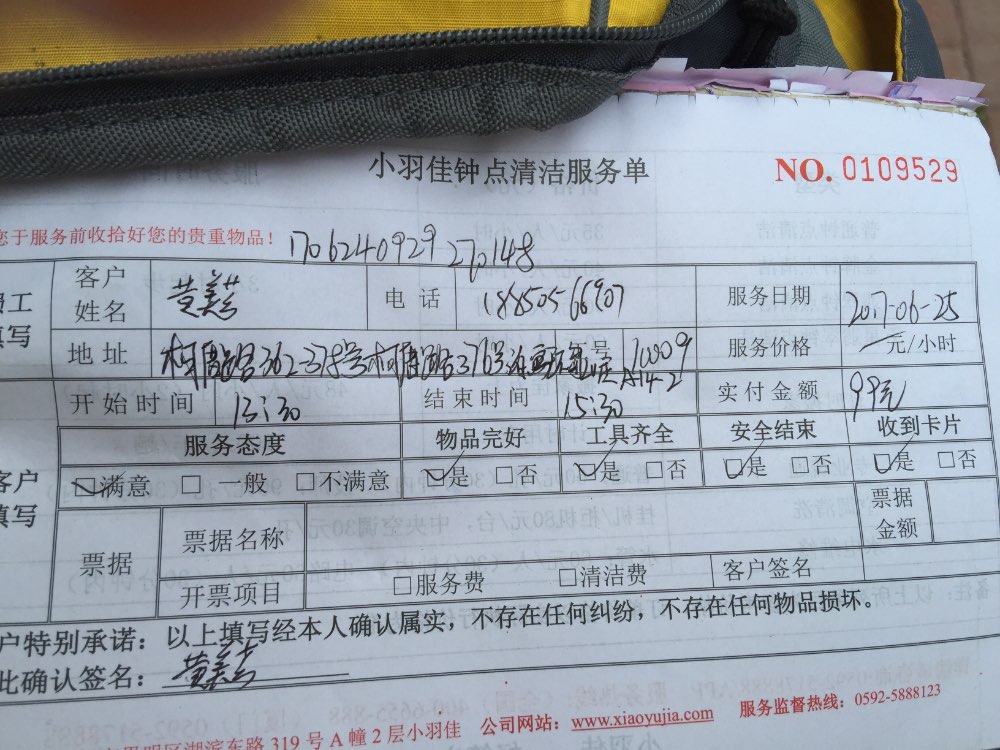 小羽佳钟点清洁服务单
NO. 0109529
您于服务前收拾好您的贵重物品！
1706240929270148
员工填写
客户姓名 黄美 电话 18850566907 服务日期 2017-06-25
地址 362-378号 376号 10009 A14-2 服务价格 一元/小时
开始时间 13:30 结束时间 15:30 实付金额 99元
客户填写
服务态度 物品完好 工具齐全 安全结束 收到卡片
☑满意 □一般 □不满意 ☑是 □否 ☑是 □否 ☑是 □否 ☑是 □否
票据 票据名称 票据金额
开票项目 □服务费 □清洁费 客户签名
户特别承诺：以上填写经本人确认属实，不存在任何纠纷，不存在任何物品损坏。
此确认签名：黄美
思明区湖滨东路319号A幢2层小羽佳 公司网站：www.xiaoyujia.com 服务监督热线：0592-5888123